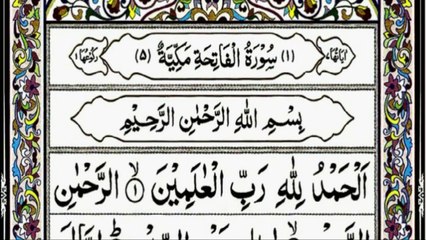 اٰيَاتُهَا ٧ (١) سُوْرَةُ الْفَاتِحَةِ مَكِّيَّةٌ (٥) رُكُوْعُهَا ١
بِسْمِ اللهِ الرَّحْمٰنِ الرَّحِيْمِ
اَلْحَمْدُ لِلّٰهِ رَبِّ الْعٰلَمِيْنَ ۙ﴿۱﴾ الرَّحْمٰنِ